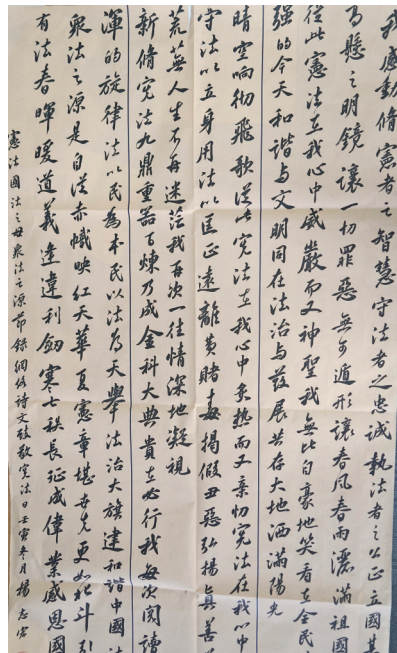 我感動脩憲者之智慧守法者之忠誠執法者之公正立國
高懸之明鏡讓一切罪惡無可遁形讓春風春雨灑滿祖國
從此憲法在我心中威嚴而又神聖我無比自豪地笑看在全民
強的今天和諧与文明同在法治与發展共存大地洒滿陽光
晴空响徹飛歌從此宪法在我心中炙热而又亲切宪法在我心中
守法以立身用法以匡正遠離黄賭毒揚假丑惡弘揚真善
荒蕪人生不再迷茫我再次一往情深地凝視
新脩宪法九鼎重器百煉乃成金科大典貴在必行我每次閱讀
渾的旋律法以民為本民以法為天舉法治大旗建和諧中國法
眾法之源是自從赤幟映红天華夏憲章堪世先更如北斗引
有法春暉暖道義逢違利劒寒七秩長征成偉業感恩國
憲法國法之母眾法之源節錄網絡诗文致敬宪法日壬寅冬月楊志宏